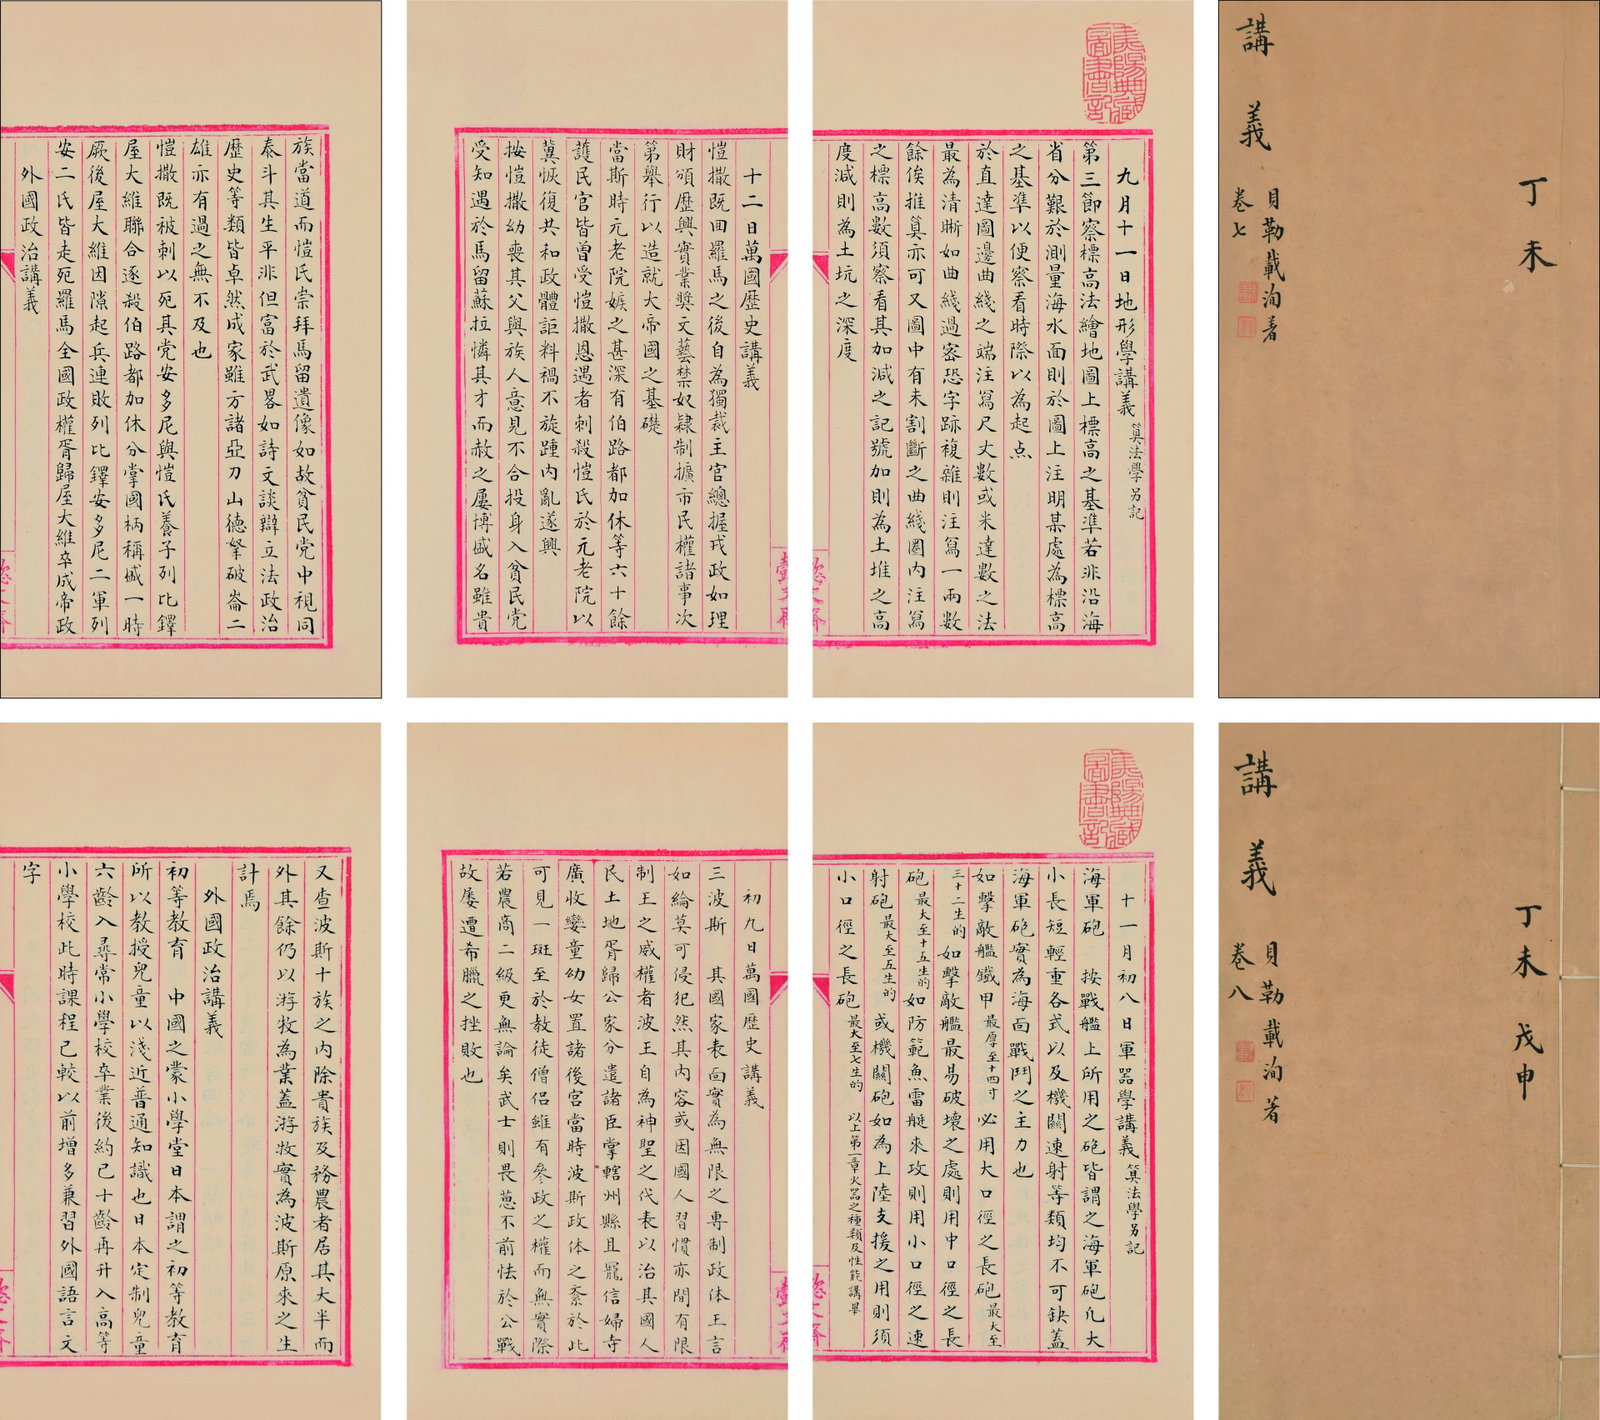 講義
貝勒載洵著
卷七
丁未
九月十一日地形學講義 算法學另記
第三節察標高法繪地圖上標高之基準若非沿海
省分艱於測量海水面則於圖上注明某處為標高
之基準以便察看時際以為起点
於直達圖邊曲綫之端注寫尺丈數或米達數之法
最為清晰如曲綫過密恐字跡複雜則注寫一兩數
餘俟推算亦可又圖中有未割斷之曲綫圈內注寫
之標高數須察看其加減之記號加則為土堆之高
度減則為土坑之深度
十二日萬國歷史講義
愷撒既回羅馬之後自為獨裁主官總握戎政如理
財頒歷興實業獎文藝禁奴隸制擴市民權諸事次
第舉行以造就大帝國之基礎
當斯時元老院嫉之甚深有伯路都加休等六十餘
護民官皆曾受愷撒恩遇者刺殺愷氏於元老院以
冀恢復共和政體詎料禍不旋踵內亂遂興
按愷撒幼喪其父與族人意見不合投身入貧民党
受知遇於馬留蘇拉憐其才而赦之屢博盛名雖貴
族當道而愷氏崇拜馬留遺像如故貧民党中視同
泰斗其生平非但富於武畧如詩文談辯立法政治
歷史等類皆卓然成家雖方諸亞刀山德拏破崙二
雄亦有過之無不及也
愷撒既被刺以死其党安多尼與愷氏養子列比鐸
屋大維聯合逐殺伯路都加休分掌國柄稱盛一時
厥後屋大維因隙起兵連敗列比鐸安多尼二軍列
安二氏皆走死羅馬全國政權胥歸屋大維卒成帝政
外國政治講義
講義
貝勒載洵著
卷八
丁未戊申
十一月初八日軍器學講義 算法學另記
海軍砲 按戰艦上所用之砲皆謂之海軍砲凡大
小長短輕重各式以及機關速射等類均不可缺蓋
海軍砲實為海面戰鬥之主力也
如擊敵艦鐵甲 最厚至十四寸 必用大口徑之長砲 最大至
三十二生的 如擊敵艦最易破壞之處則用中口徑之長
砲 最大至十五生的 如防範魚雷艇來攻則用小口徑之速
射砲 最大至五生的 或機關砲如為上陸支援之用則須
小口徑之長砲 最大至七生的 以上第一章火器之種類及性能講畢
初九日萬國歷史講義
三波斯 其國家表面實為無限之專制政体王言
如綸莫可侵犯然其內容或因國人習慣亦間有限
制王之威權者波王自為神聖之代表以治其國人
民土地胥歸公家分遣諸臣掌轄州縣且寵信婦寺
廣收孌童幼女置諸後宮當時波斯政体之紊於此
可見一斑至於教徒僧侶雖有參政之權而無實際
若農商二級更無論矣武士則畏葸不前怯於公戰
故屢遭希臘之挫敗也
又查波斯十族之內除貴族及務農者居其大半而
外其餘仍以游牧為業蓋游牧實為波斯原來之生
計焉
外國政治講義
初等教育 中國之蒙小學堂日本謂之初等教育
所以教授兒童以淺近普通知識也日本定制兒童
六齡入尋常小學校卒業後約已十齡再升入高等
小學校此時課程已較以前增多兼習外國語言文
字